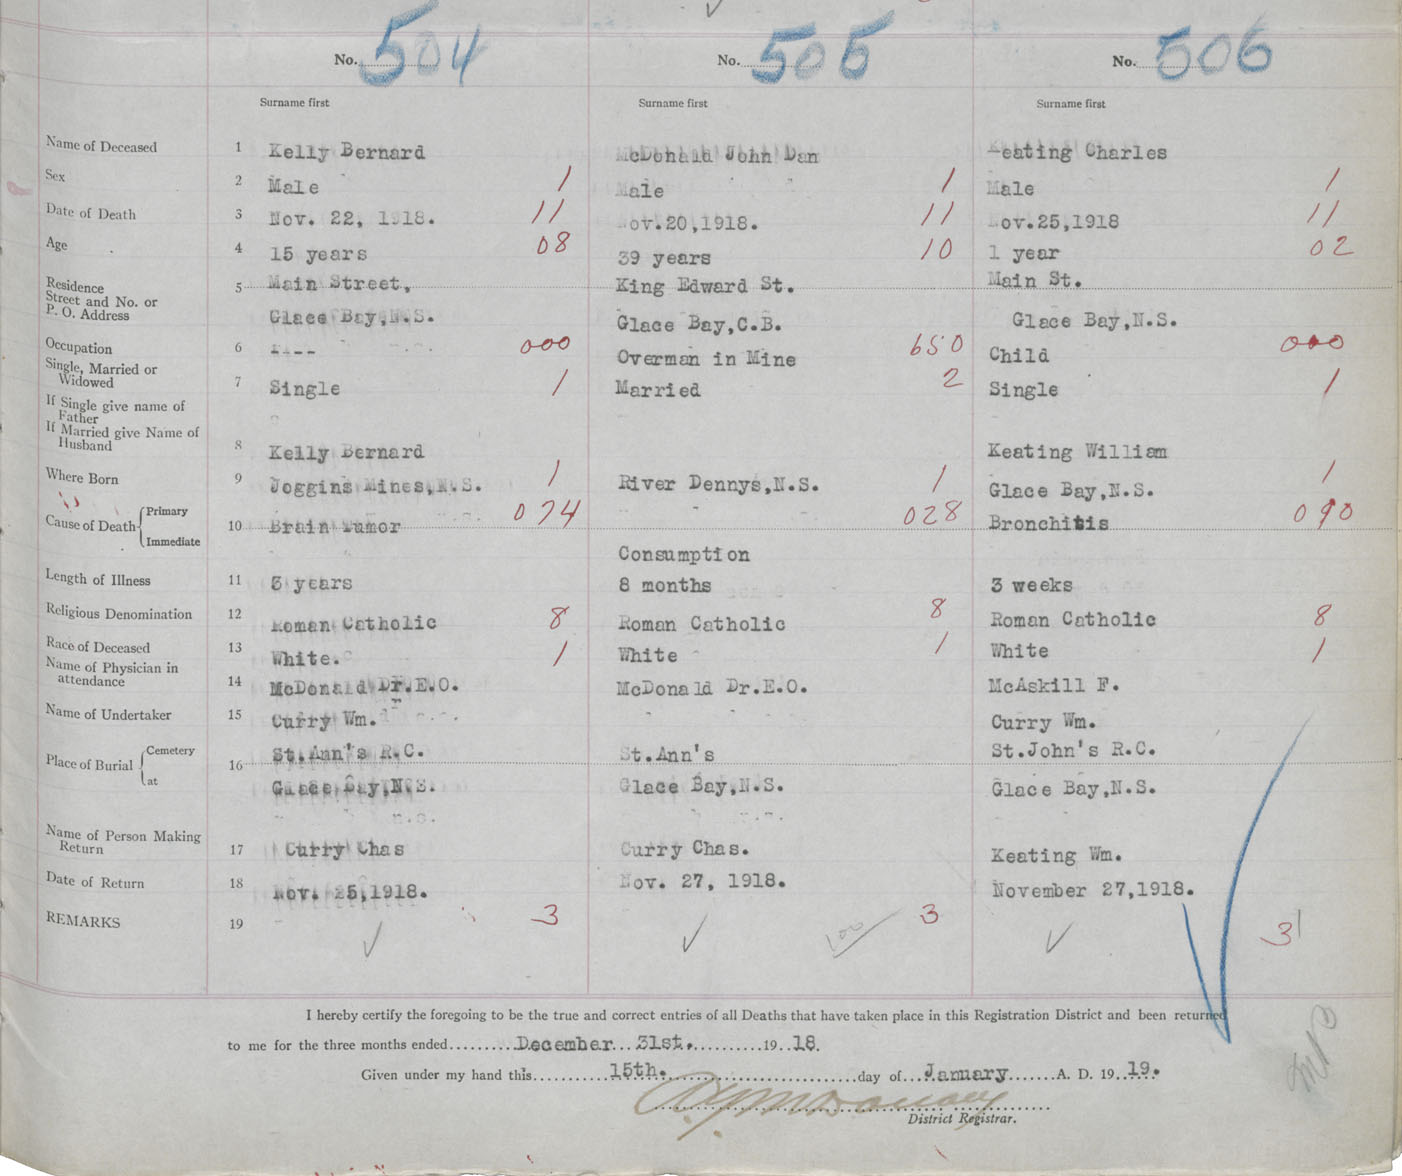 No. 504 No. 505 No. 506
Surname first Surname first Surname first
Name of Deceased 1 Kelly Bernard McDonald John Dan Keating Charles
Sex 2 Male 1 Male 1 Male 1
Date of Death 3 Nov. 22, 1918. 11 Nov.20,1918. 11 Nov.25,1918 11
Age 4 15 years 08 39 years 10 1 year 02
Residence
Street and No. or
P. O. Address
5 Main Street, King Edward St. Main St.
Glace Bay,N.S. Glace Bay,C.B. Glace Bay,N.S.
Occupation 6 ---- 000 Overman in Mine 650 Child 000
Single, Married or
Widowed
7 Single 1 Married 2 Single 1
If Single give name of
Father
If Married give Name of
Husband
8 Kelly Bernard Keating William
Where Born 9 Joggins Mines,N.S. 1 River Dennys,N.S. 1 Glace Bay,N.S. 1
Cause of Death Primary
Immediate
10 Brain Tumor 074 028 Bronchitis 090
Consumption
Length of Illness 11 3 years 8 months 3 weeks
Religious Denomination 12 Roman Catholic 8 Roman Catholic 8 Roman Catholic 8
Race of Deceased 13 White. 1 White 1 White 1
Name of Physician in
attendance
14 McDonald Dr.E.O. McDonald Dr.E.O. McAskill F.
Name of Undertaker 15 Curry Wm. Curry Wm.
Place of Burial Cemetery
at
16 St.Ann's R.C. St.Ann's St.John's R.C.
Glace Bay,N.S. Glace Bay,N.S. Glace Bay,N.S.
Name of Person Making
Return
17 Curry Chas Curry Chas. Keating Wm.
Date of Return 18 Nov. 25,1918. Nov. 27, 1918. November 27,1918.
REMARKS 19 3 3 3
I hereby certify the foregoing to be the true and correct entries of all Deaths that have taken place in this Registration District and been returned
to me for the three months ended December 31st. 1918.
Given under my hand this 15th. day of January A. D. 1919.
District Registrar.